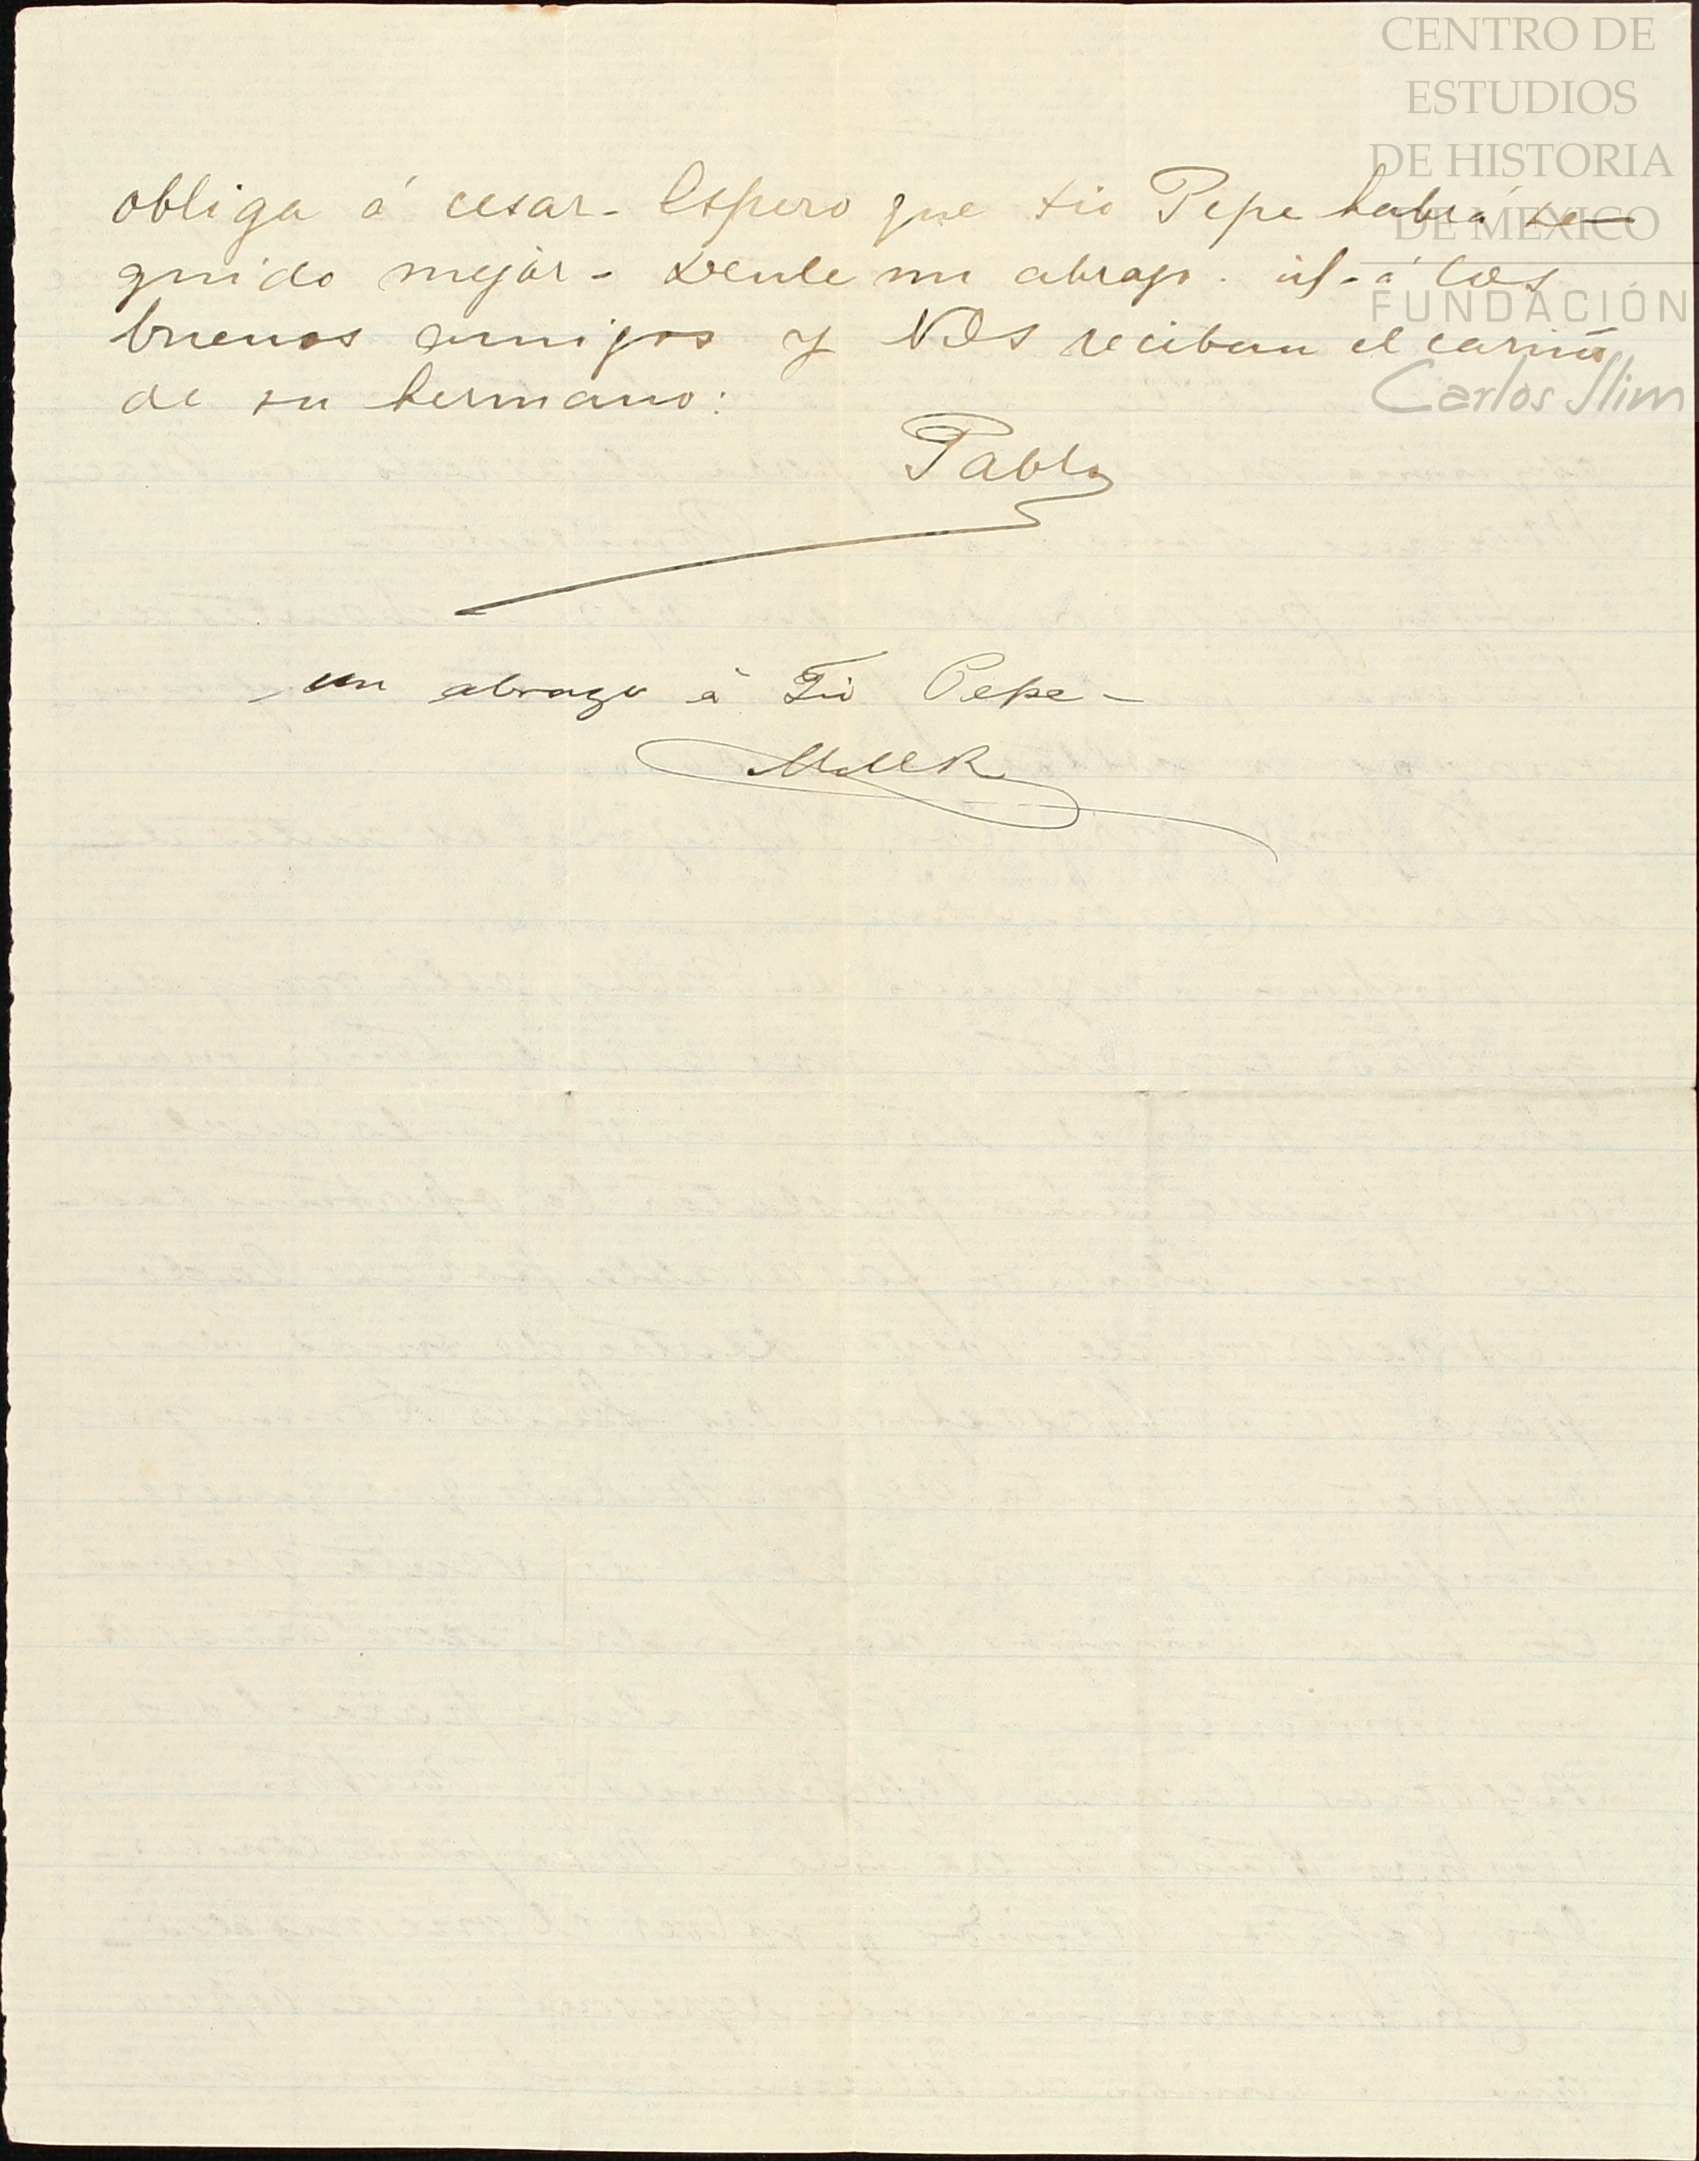 CENTRO DE
ESTUDIOS
DE HISTORIA
DE MEXICO
FUNDACIÓN
Carlos Slim
obliga á cesar - Espero que tio Pepe habrá se-
guido mejor - Denle mi abrazo. id - á los
buenos amigos y VDs reciban el cariño
de su hermano:
Pablo
un abrazo á Tio Pepe -